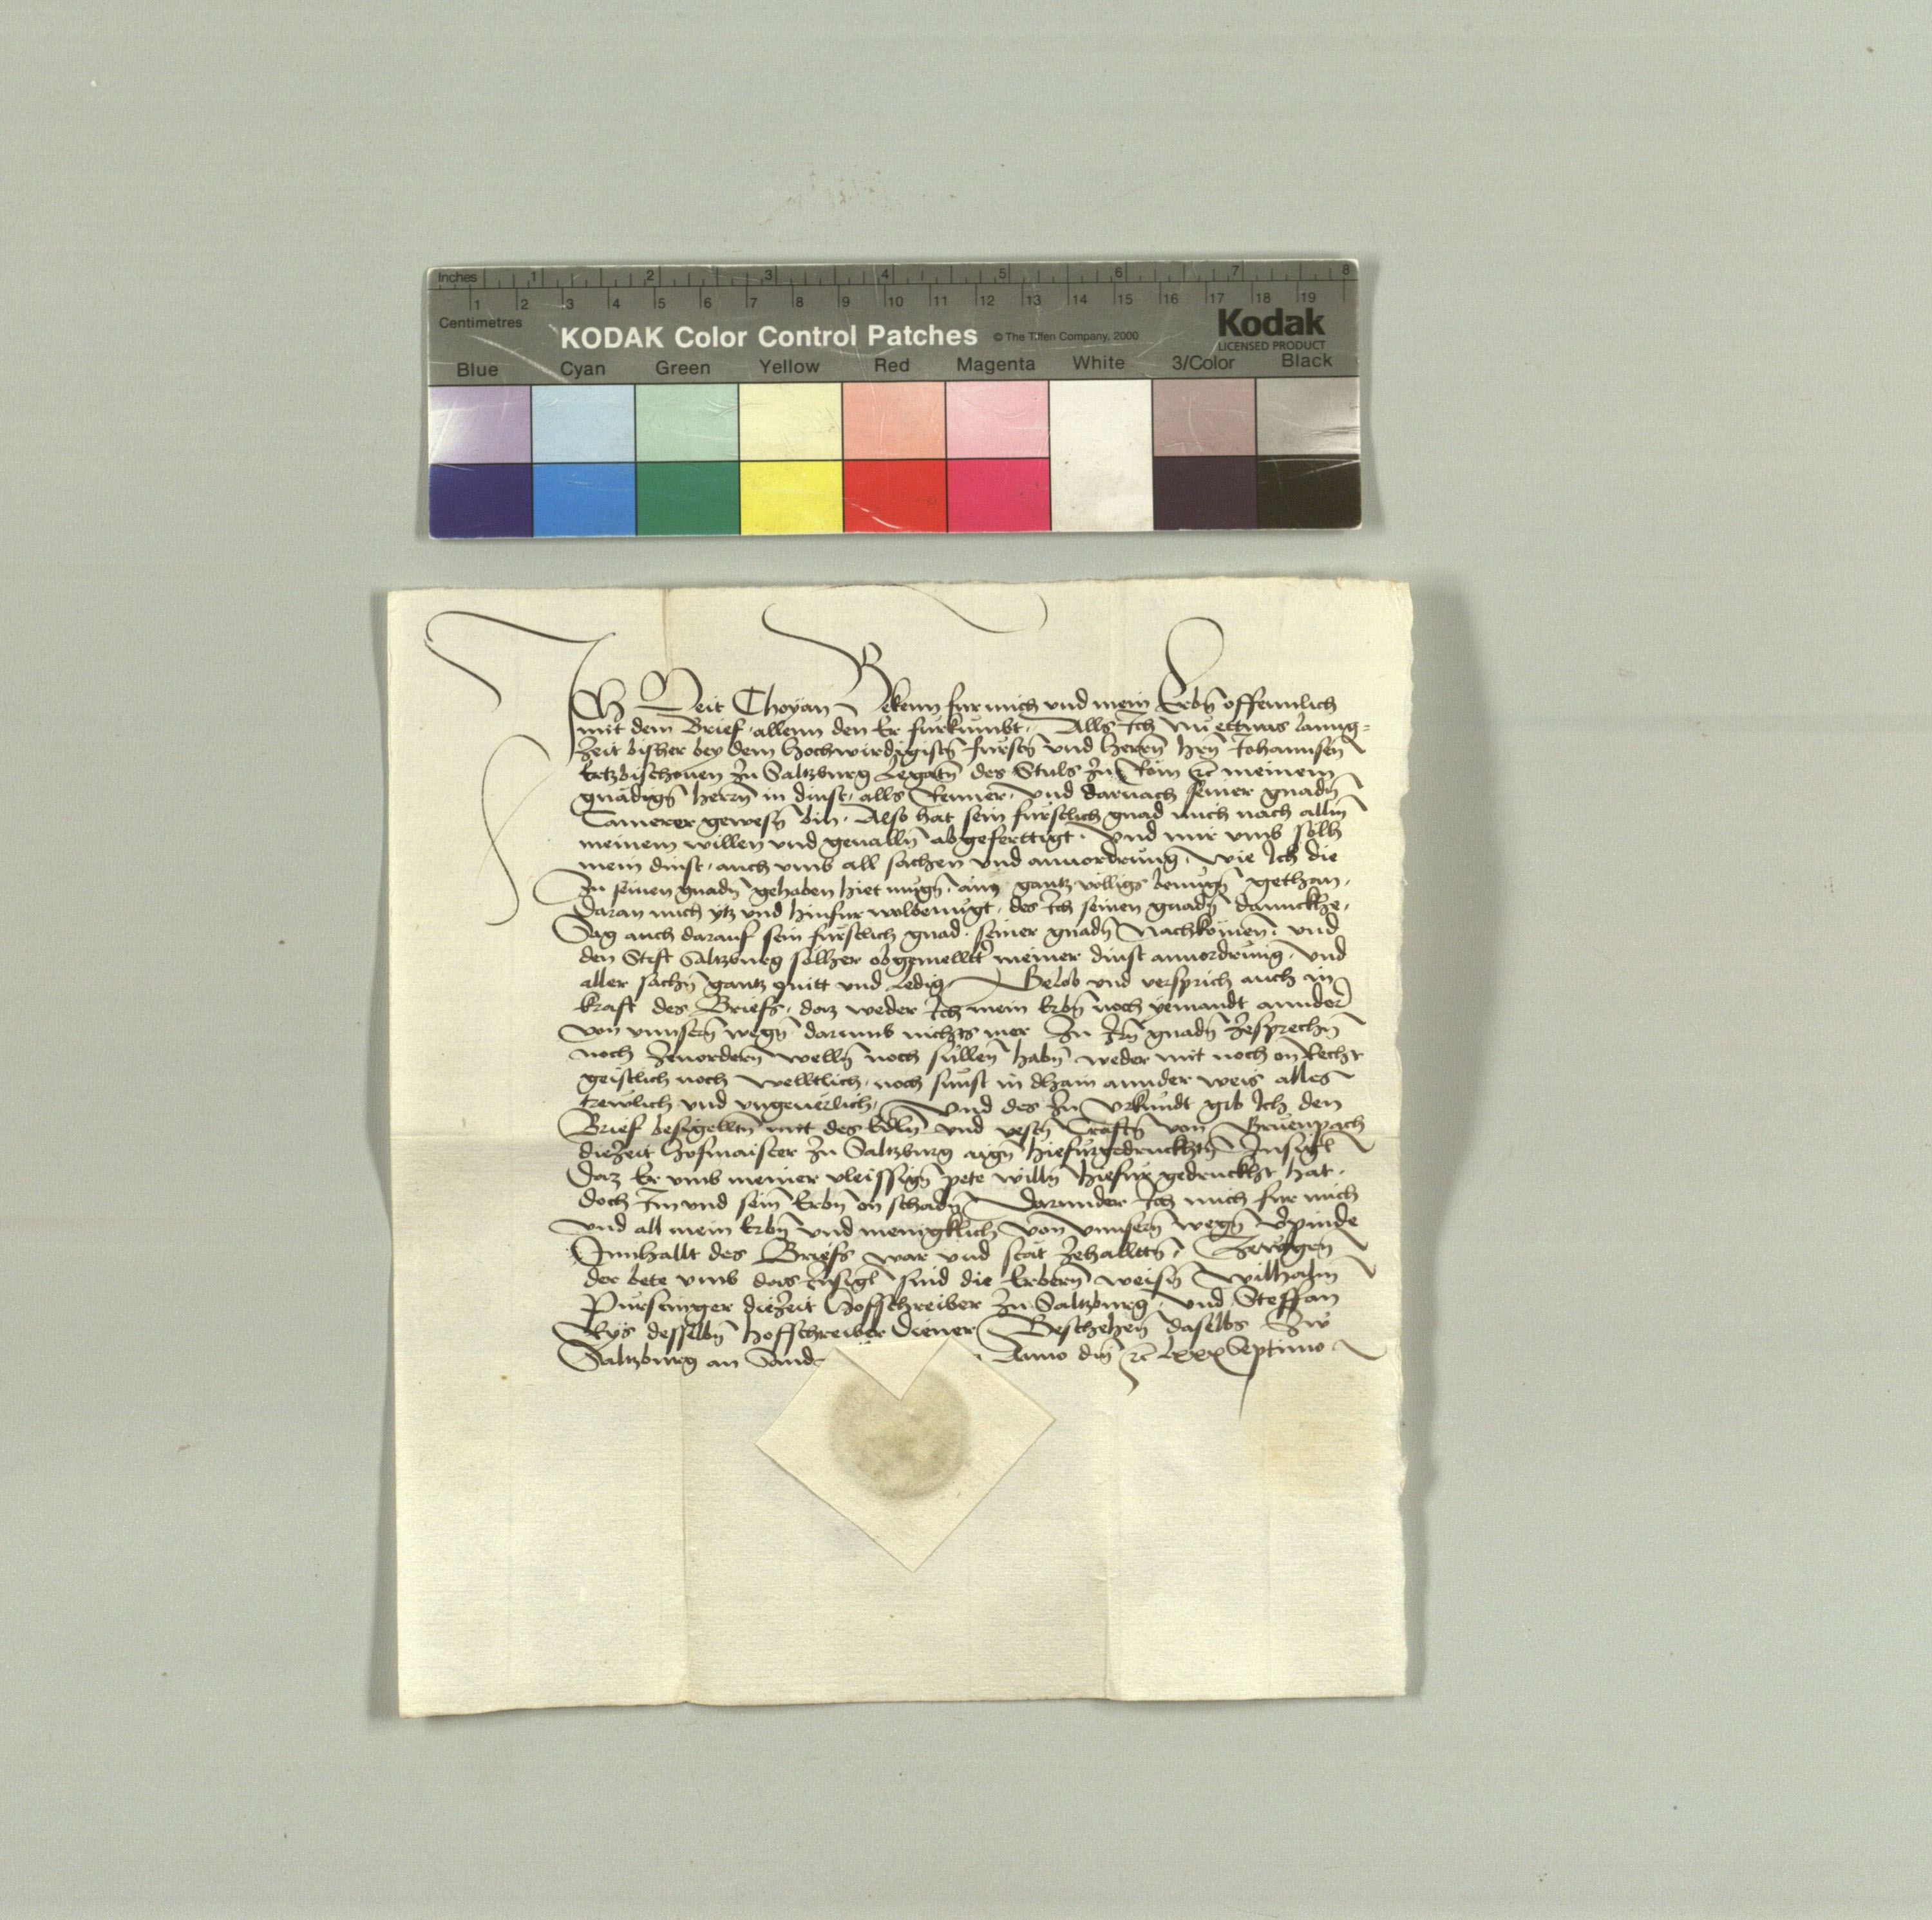 Inches 1 2 3 4 5 6 7 8
1 2 3 4 5 6 7 8 9 10 11 12 13 14 15 16 17 18 19
Centimetres
KODAK Color Control Patches © The Tiffen Company, 2000 Kodak
LICENSED PRODUCT
Blue Cyan Green Yellow Red Magenta White 3/Color Black
Ich Veit Choyan Bekenn fur mich vnd mein Erbn̄ offennlich
mit dem Brief allenn den Er fürkumbt. Alls Ich nu ettwas lanng-
zeit bisher bey dem hochwirdigistn̄ fürstn̄ vnd herrn̄ hrn̄ Johannsen
Ertzbischouen zu Saltzburg Legatn̄ des Stuls zu Rom ꝛc meinem
gnädign̄ herrn̄ in dinst, alls Renner, vnd darnach seiner gnadn̄
Camerer gewesn̄ bin. Also hat sein fürstlich gnad mich nach allm̄
meinem willen vnd geualln̄ abgeferttigt. Vnd mir vmb sölh
mein dinst, auch vmb all sachen vnd anuordrung, wie Ich die
Zu seinen gnadn̄ gehaben hiet mügn̄, ain gantz völligs benügn̄ gethan,
daran mich ytz vnd hinfur wolbenügt, des Ich seinen gnadn̄ dannckhe,
Sag auch darauf sein fürstlich gnad, seiner gnadn̄ Nachkömen, vnd
den Stift Saltzburg sölher obgemelltr̄ meiner dinst anuordrung, vnd
aller sachn̄ gantz quitt vnd Ledig, Gelob vnd versprich auch in
kraft des Briefs, daz weder Ich mein Erbn̄ noch yemandt annder
von vnnsern̄ wegn̄ darumb nichts mer Zu Irn̄ gnadn̄ zesprechn̄
noch Zeuordern̄ welln̄ noch süllen̄ habn̄ weder mit noch on Recht
geistlich noch welltlich, noch sunst in dhain annder weis alles
trewlich vnd vngeuerlich, Vnd des Zu Vrkundt gib Ich den
Brief besigelltn̄ mit des Edln̄ vnd vestn̄ von
diezeit Hofmaister Zu Saltzburg aign̄ hiefürgedruckhtn̄ Insigl
Daz Er vmb meiner vleissign̄ pete willn̄ hiefür gedruckht hat,
doch Im vnd sein̄ Erbn̄ on schadn̄ Darunder Ich mich fur mich
vnd all mein Erbn̄ vnd menigklich von vnnsern̄ wegn̄ verpinde
Innhallt des Briefs war vnd stät Zehalltn̄, Zewgen
der bete vmb das Insigl sind die Erbern̄ weisn̄ Wilhalm
Pürstinger diezeit Hofschreiber Zu Saltzburg, vnd Steffan
Rys desselbn̄ hofschreiber Diener Beschehen̄ daselbs Zw
Saltzburg an Sand Anno dn̄i ꝛc lxxxSeptimo